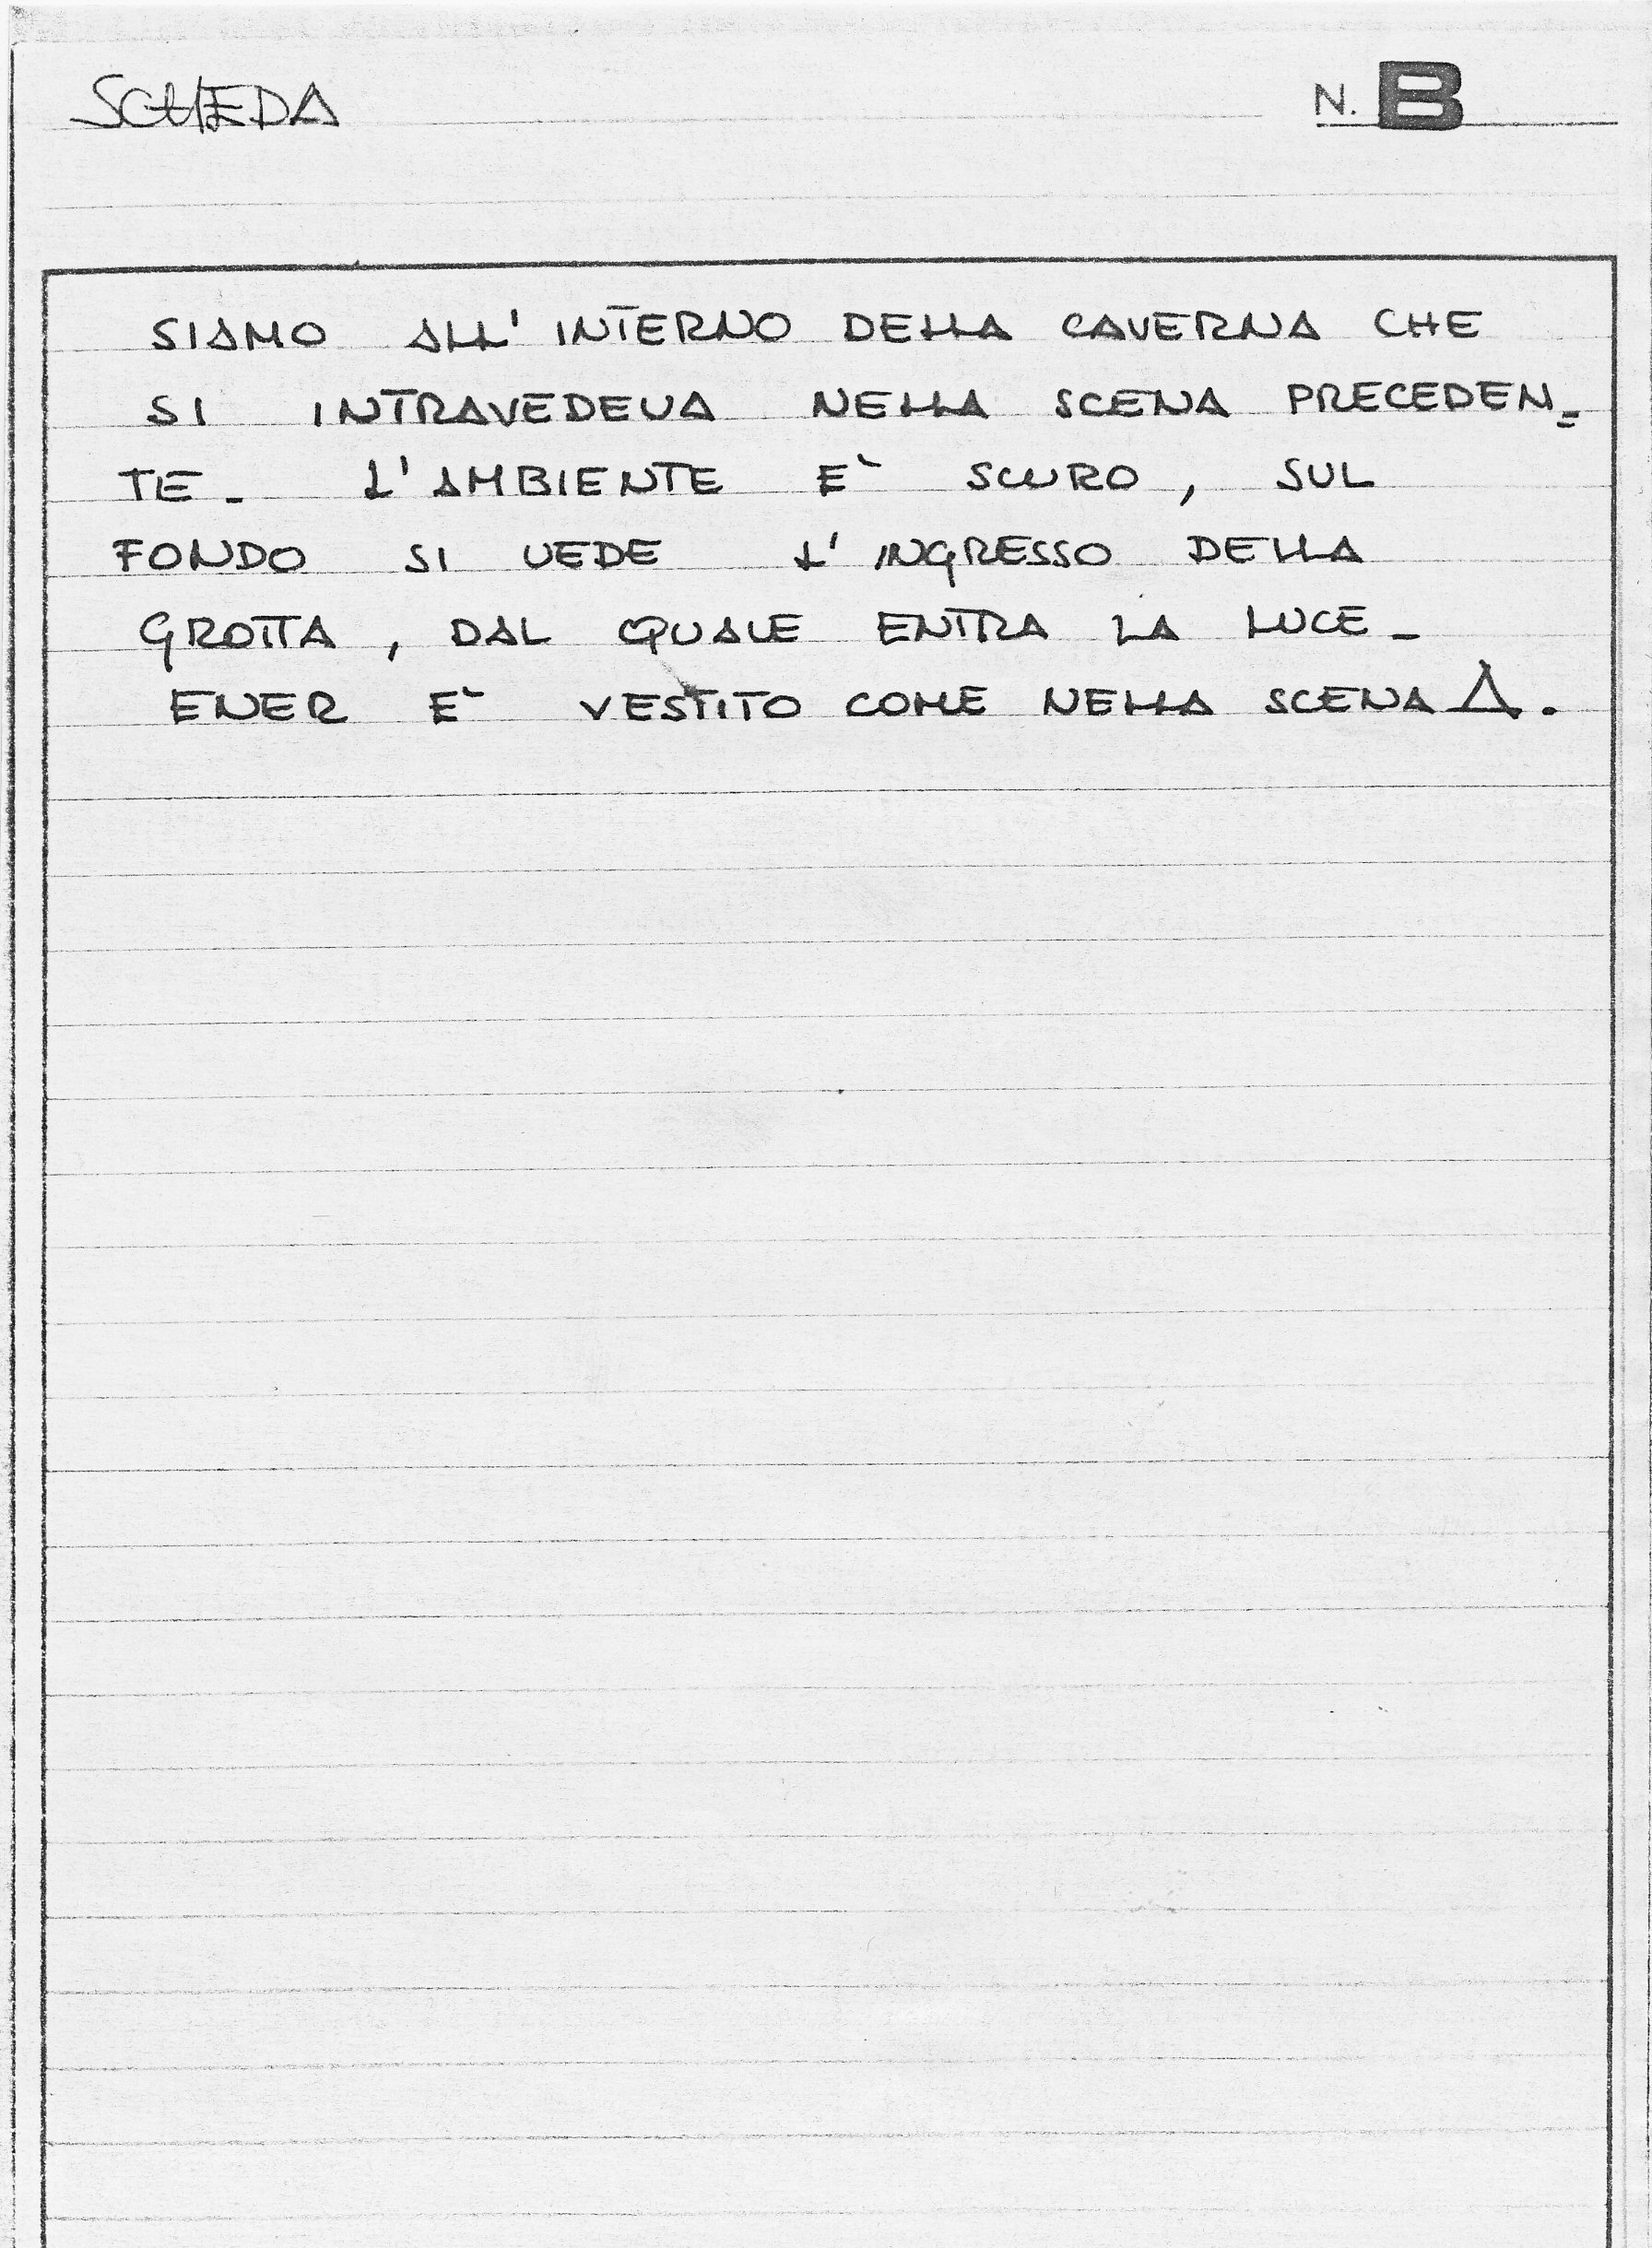 SCHEDA N. B
SIAMO ALL' INTERNO DELLA CAVERNA CHE
SI INTRAVEDEVA NELLA SCENA PRECEDEN=
TE - L'AMBIENTE E` SCURO, SUL
FONDO SI VEDE L'INGRESSO DELLA
GROTTA, DAL QUALE ENTRA LA LUCE -
ENER E` VESTITO COME NELLA SCENA A.